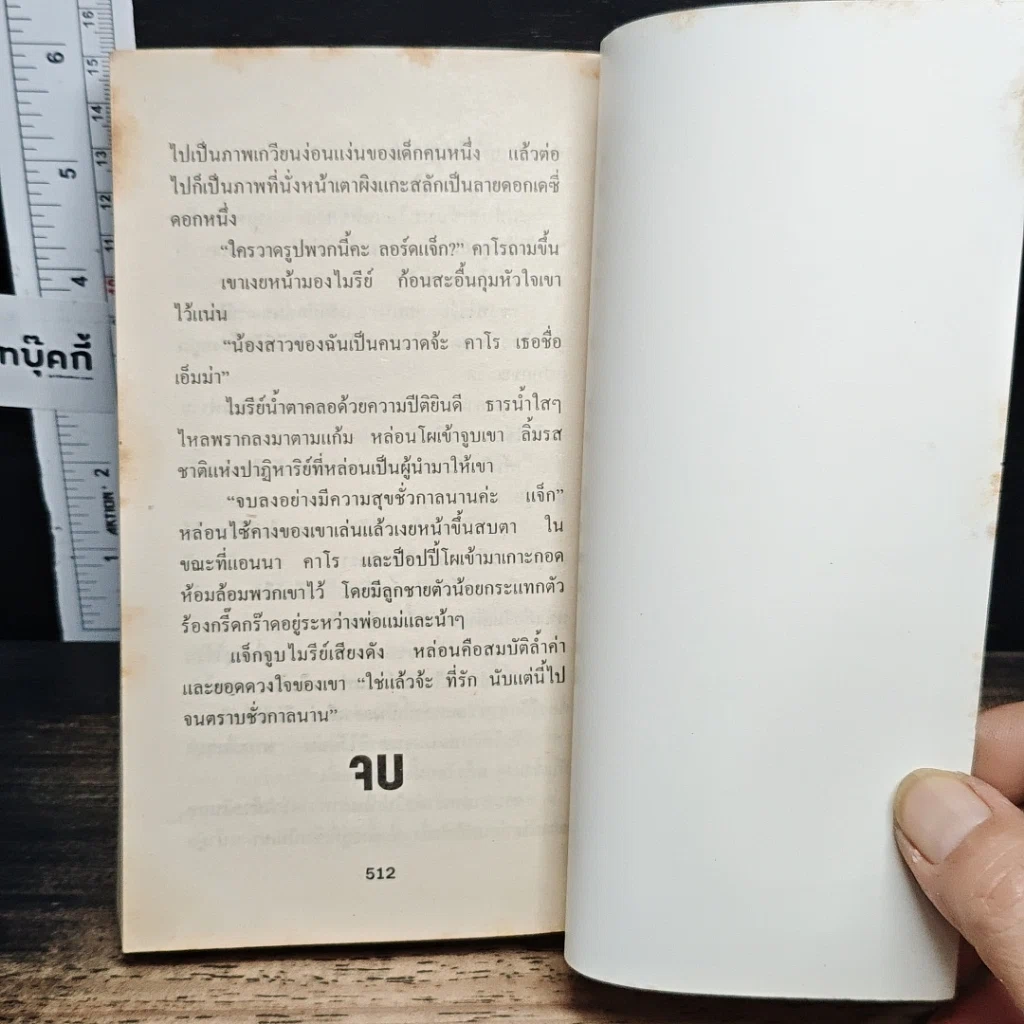 ไปเป็นภาพเกวียนง่อนแง่นของเด็กคนหนึ่ง แล้วต่อ
ไปก็เป็นภาพที่นั่งหน้าเตาผิงแกะสลักเป็นลายดอกเดซี่
ดอกหนึ่ง
“ใครวาดรูปพวกนี้คะ ลอร์ดแจ็ก?” คาโรถามขึ้น
เขาเงยหน้ามองไมรีย์ ก้อนสะอื้นกุมหัวใจเขา
ไว้แน่น
“น้องสาวของฉันเป็นคนวาดจ้ะ คาโร เธอชื่อ
เอ็มม่า”
ไมรีย์น้ำตาคลอด้วยความปีติยินดี ธารน้ำใสๆ
ไหลพรากลงมาตามแก้ม หล่อนโผเข้าจูบเขา ลิ้มรส
ชาติแห่งปาฏิหาริย์ที่หล่อนเป็นผู้นำมาให้เขา
“จบลงอย่างมีความสุขชั่วกาลนานค่ะ แจ็ก”
หล่อนไซ้คางของเขาเล่นแล้วเงยหน้าขึ้นสบตา ใน
ขณะที่แอนนา คาโร และป๊อปปี้โผเข้ามาเกาะกอด
ห้อมล้อมพวกเขาไว้ โดยมีลูกชายตัวน้อยกระแทกตัว
ร้องกรี๊ดกร๊าดอยู่ระหว่างพ่อแม่และน้าๆ
แจ็กจูบไมรีย์เสียงดัง หล่อนคือสมบัติล้ำค่า
และยอดดวงใจของเขา “ใช่แล้วจ้ะ ที่รัก นับแต่นี้ไป
จนตราบชั่วกาลนาน”
จบ
512
6
5
4
2
1
16
15
14
13
12
11
10
บุ๊คกี้